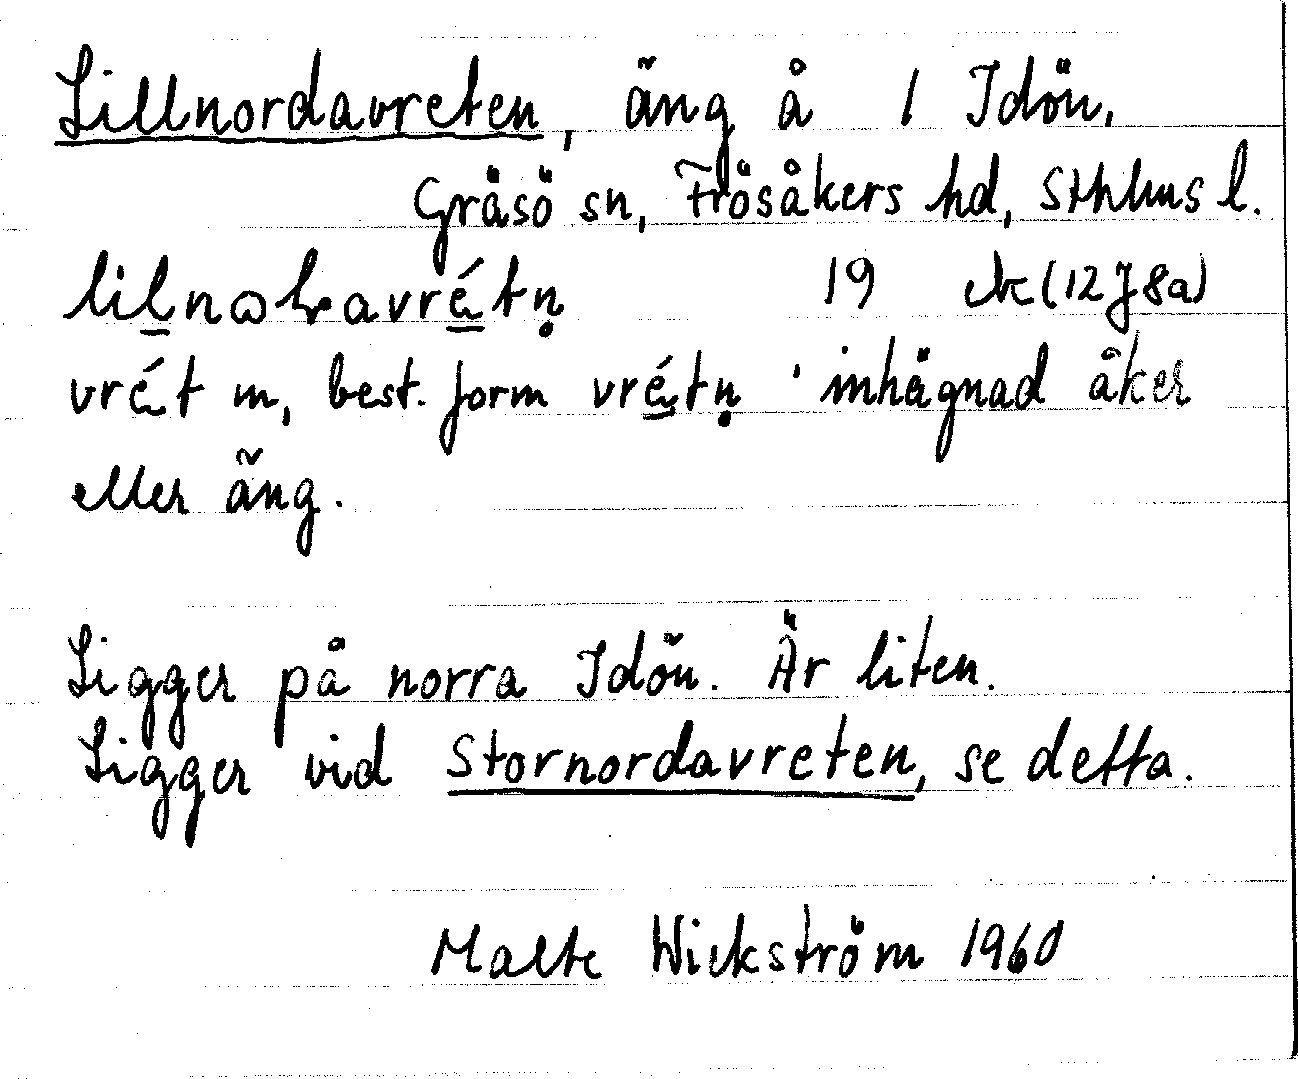 Lillnordavreten, äng å 1 Idön,
Gräsö sn, Frösåkers hd, Sthlms l.
19 ek (12J8a)
vrét m, best. form vrétn̥ 'inhägnad åker
eller äng.
Ligger på norra Idön. Är liten.
Ligger vid Stornordavreten, se detta.
Malte Wickström 1960